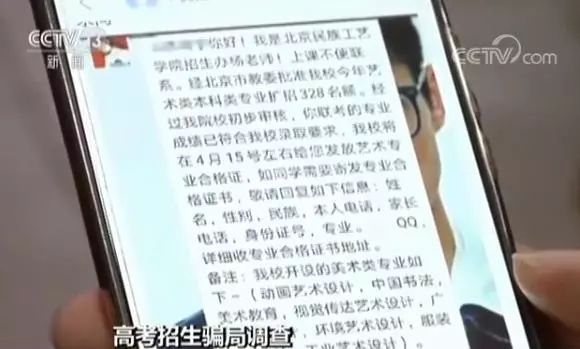 CCTV 13
新闻
CCTV.com
你好！我是北京民族工艺
学院招生办杨老师！上课不便联
系。经北京市教委批准我校今年艺
术类本科类专业扩招328名额。经
过我院校初步审核，你联考的专业
成绩已符合我校录取要求，我校将
在4月15号左右给您发放艺术专
业合格证，如同学需要寄发专业合
格证书，敬请回复如下信息：姓
名，性别，民族，本人电话，家长
电话，身份证号，专业。 QQ，
详细收专业合格证书地址。
备注：我校开设的美术类专业如
下-（动画艺术设计，中国书法，
美术教育，视觉传达艺术设计，广
，环境艺术设计，服装
工业艺术设计）。
高考招生骗局调查